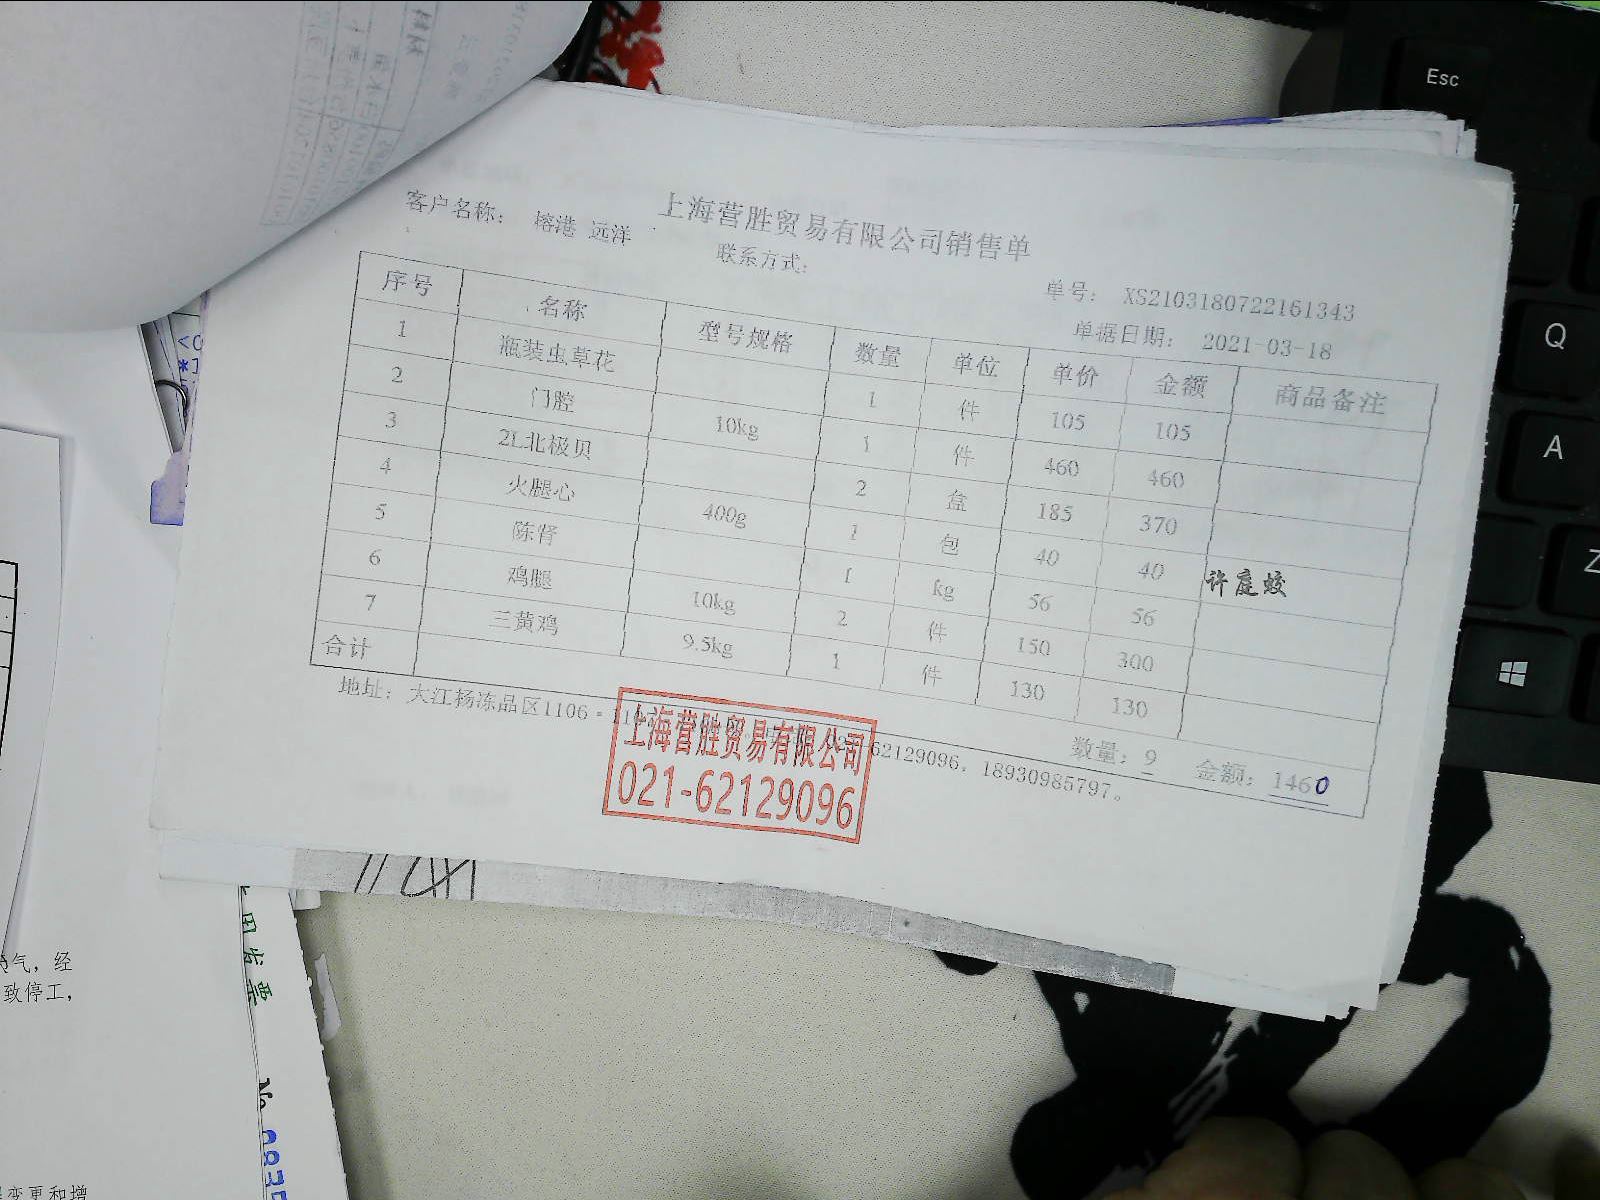 上海营胜贸易有限公司销售单
客户名称： 榕港 远洋
联系方式：
单号： XS2103180722161343
单据日期： 2021-03-18
序号 名称 型号规格 数量 单位 单价 金额 商品备注
1 瓶装虫草花 1 件 105 105
2 门腔 10kg 1 件 460 460
3 2L北极贝 2 盒 185 370
4 火腿心 400g 1 包 40 40
5 陈肾 1 kg 56 56
6 鸡腿 10kg 2 件 150 300
7 三黄鸡 9.5kg 1 件 130 130
许庭蛟
合计 数量：9 金额：1460
地址：大江杨冻品区1106 62129096，18930985797。
上海营胜贸易有限公司
021-62129096
Esc
Q
A
Z
气，经
致停工，
变更和增
用发票
No